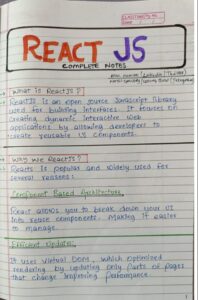 REACT JS
COMPLETE NOTES
What is ReactJS?
ReactJS is an open source Javascript library
used for building interfaces. It focuses on
creating dynamic interactive web
applications by allowing developers to
create reusable UI components.
Why We ReactJs?
Reacts is popular and widely used for
several reasons:
Component Based Architecture
React allows you to break down your UI
into reuse components. Making it easier
to manage.
Efficient Updates
It uses Virtual Dom, which optimized
rendering by updating only parts of pages
that change improving performance.
1